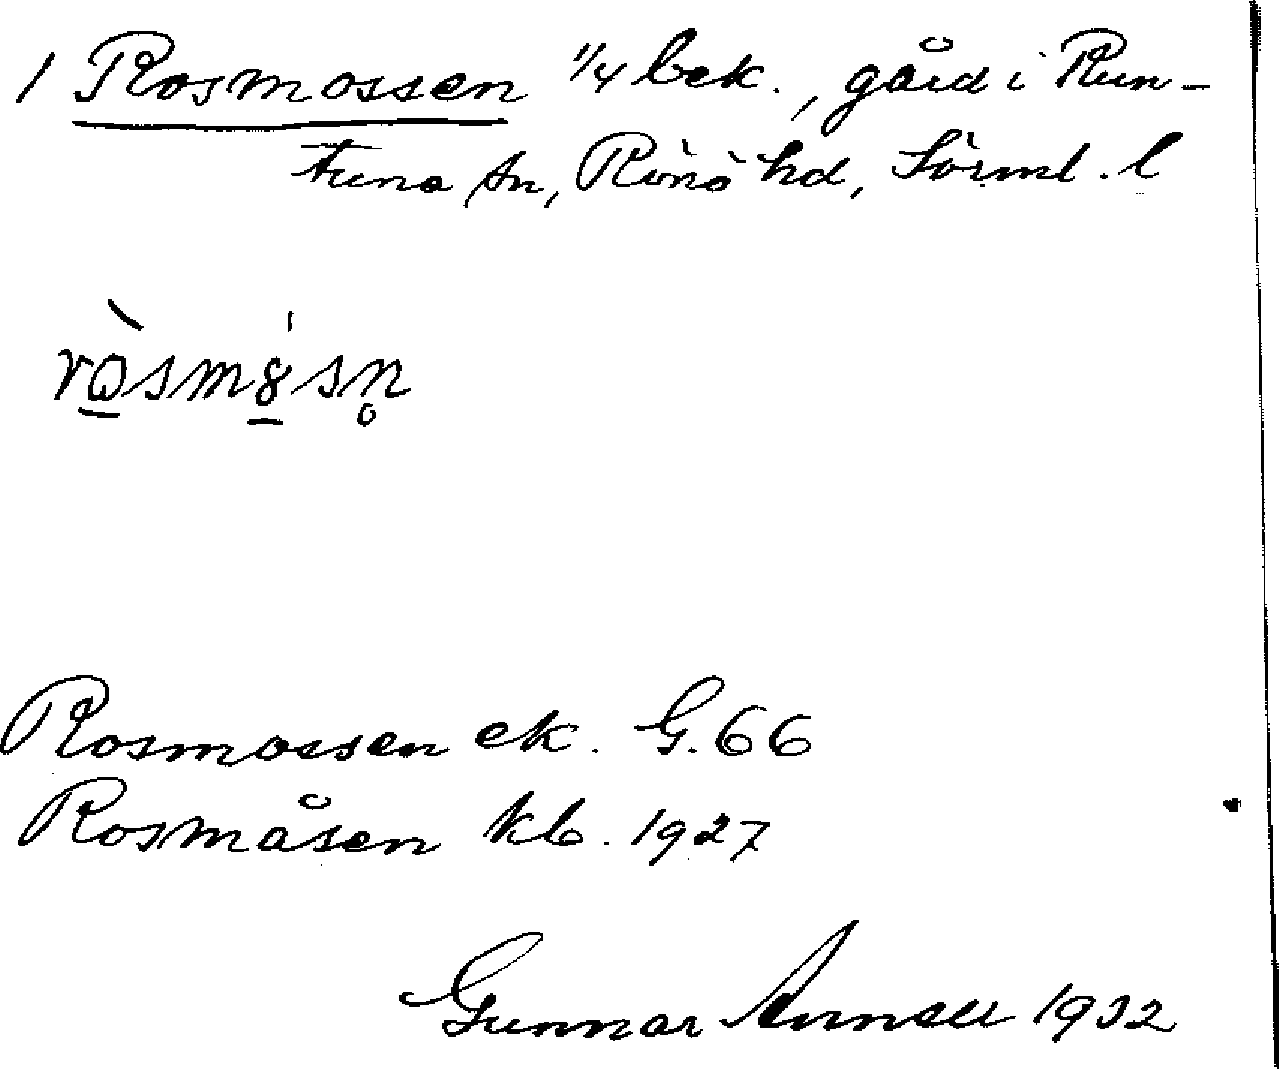 1 Rosmossen 1/4 bek., gård i Run-
tuna sn, Rönö hd, Sörml. l
Rosmossen ek. G.66
Rosmåsen kb. 1927
Gunnar 1932